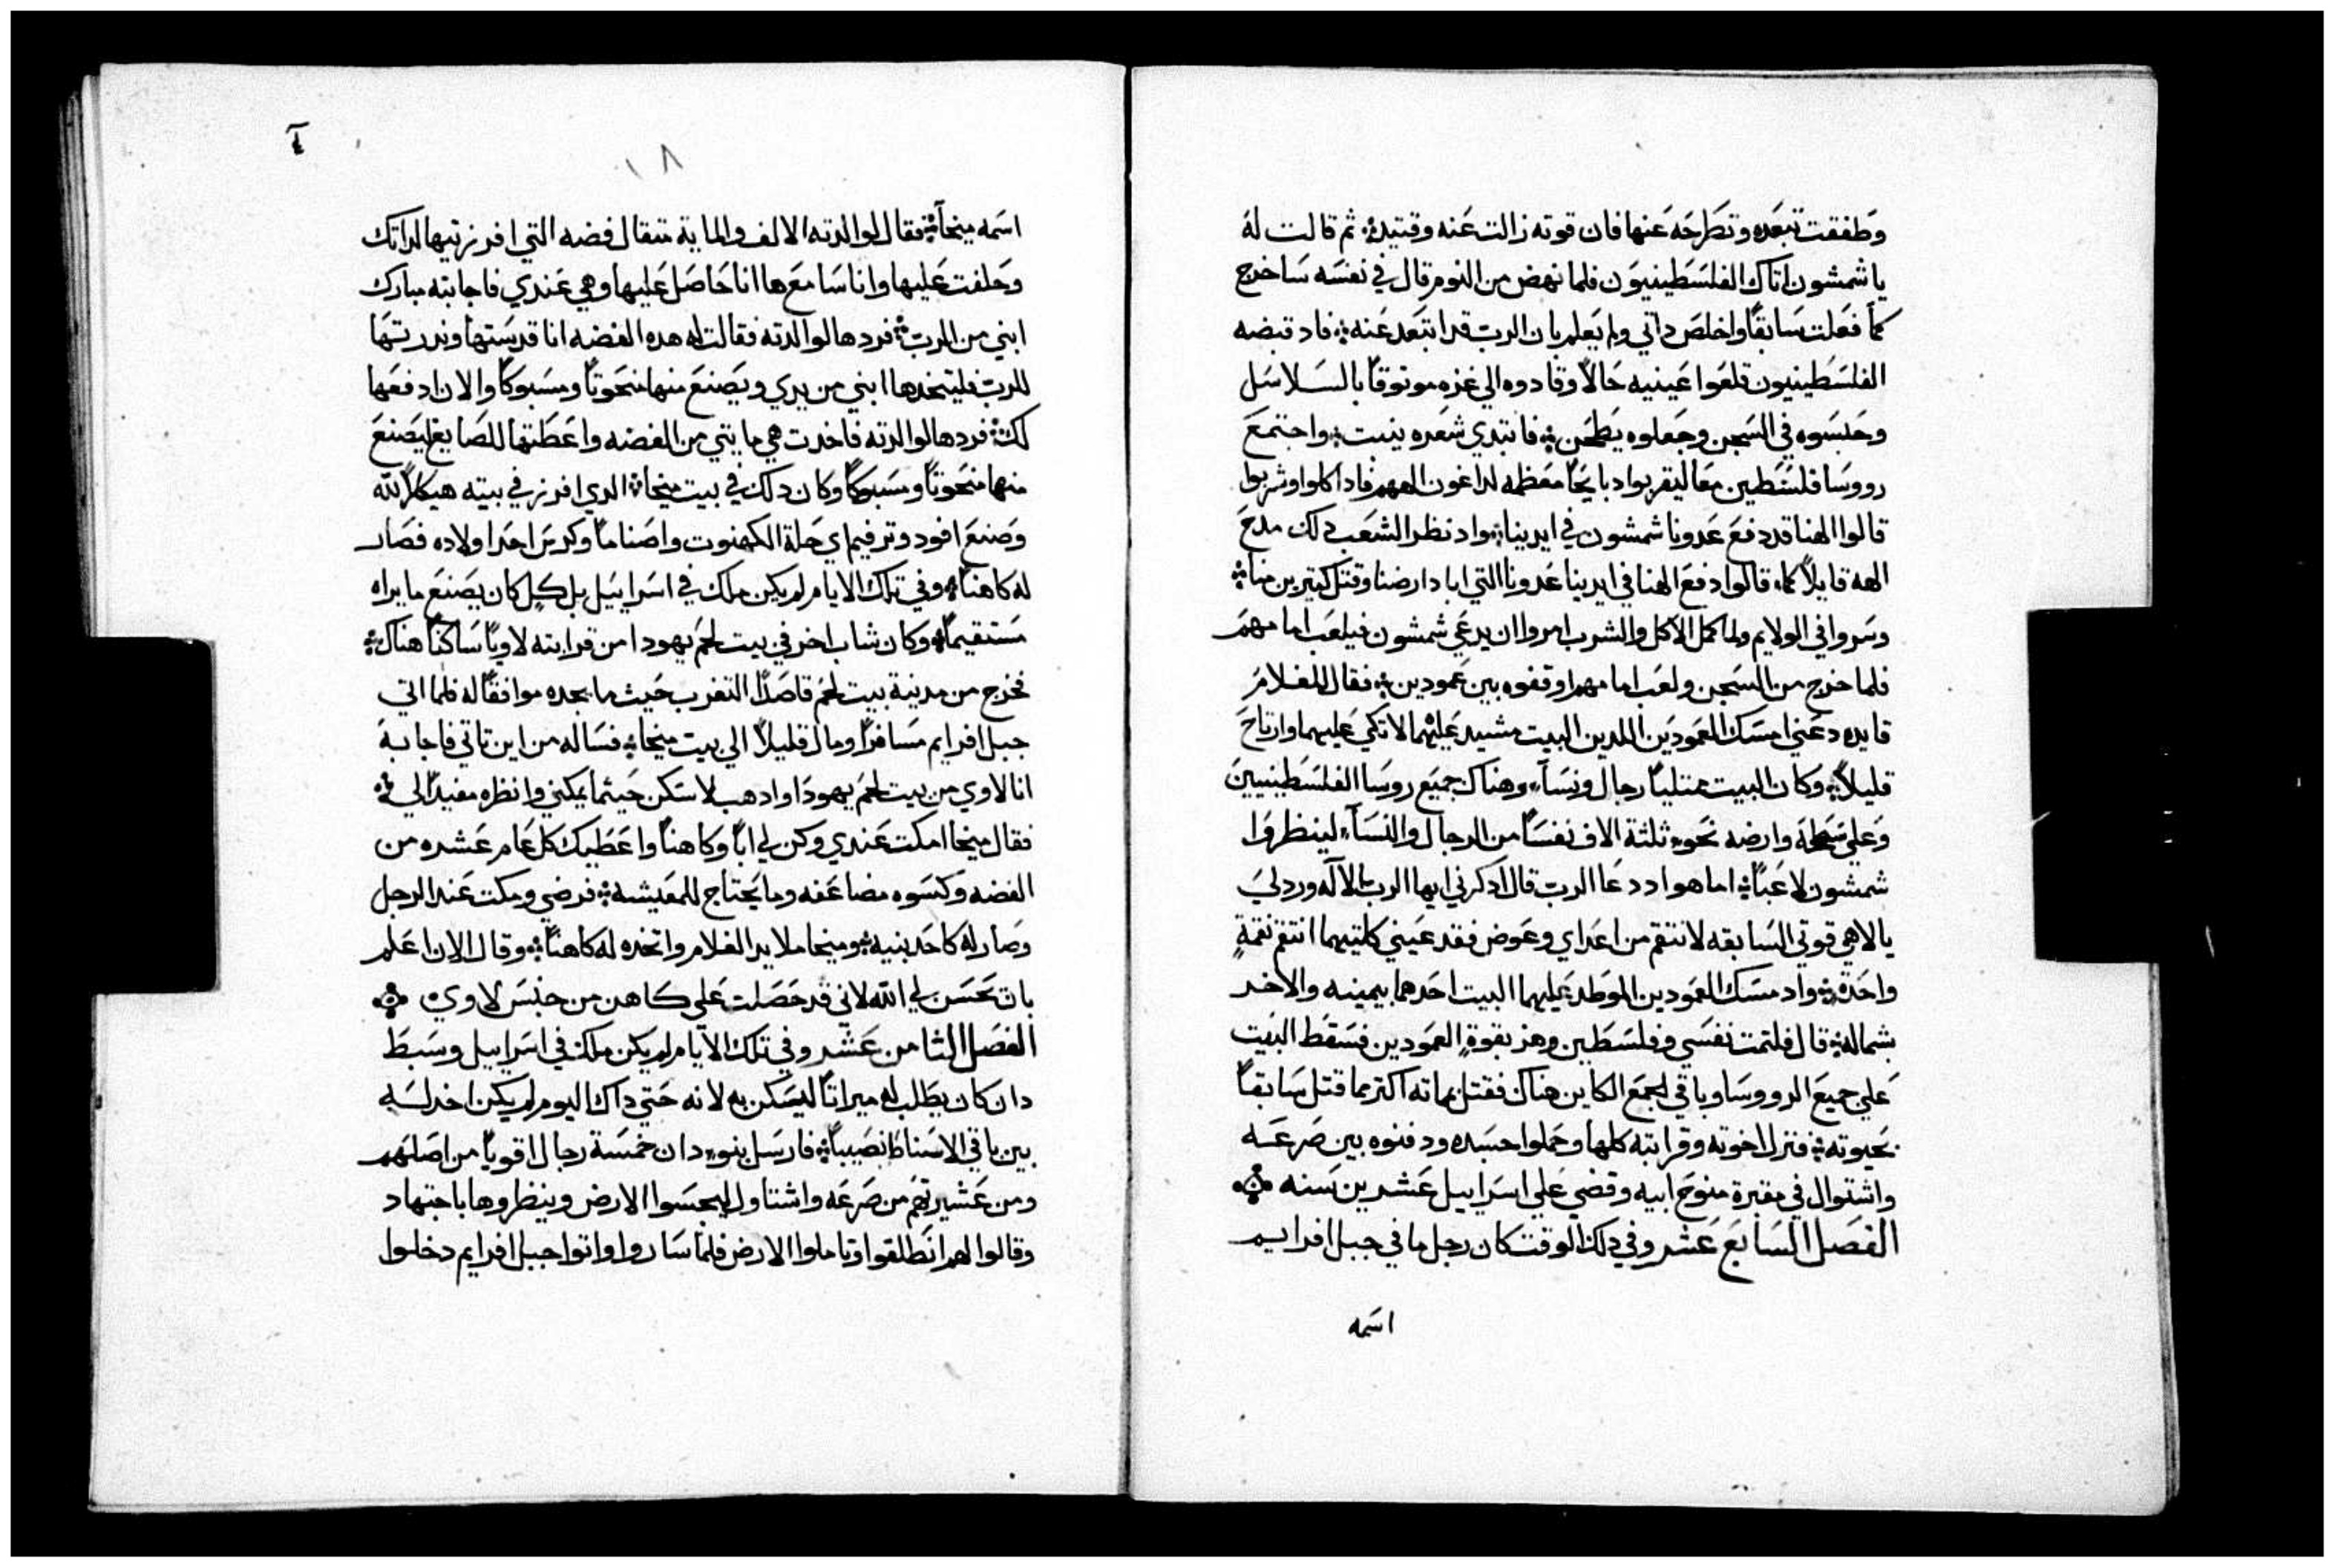 وطفقت تبعده وتطرحه عنها فان قوته زالت عنه وقتيد ثم قالت له
يا شمشون اتاك الفلسطينيون فلما نهض من النوم قال في نفسه ساخرج
كما فعلت سابقًا واخلص داتي ولم يعلم بان الرب قد ابتعد عنه فاد قبضه
الفلسطينيون قلعوا عينيه حالاً وقادوه الي غزه موتوقاً بالسلاسل
وحبسوه في السجن وجعلوه يطحن فابتدي شعره ينبت واجتمع
رووسا فلسطين معا ليقربوا دبايحاً معظمه لداغون الههم فاد اكلوا وشربوا
قالوا الهنا قد دفع عدونا شمشون في ايدينا واد نظر الشعب دلك مدح
الهه قايلاً كما قالوا دفع الهنا في ايدينا عدونا التي اباد ارضنا وقتل كتيرين منا
وسروا في الولايم ولما كمل الاكل والشرب امروا ان يدعي شمشون فيلعب امامهم
فلما خرج من السجن ولعب امامهم اوقفوه بين عمودين فقال للغلام
قايده دعني امسك العمودين اللدين البيت مشيد عليهما لاتكي عليهما وارتاح
قليلاً وكان البيت ممتلياً رجال ونسآء وهناك جميع روسا الفلسطينيين
وعلي سطحه وارضه نحو ثلثة الاف نفساً من الرجال والنسآء لينظروا
شمشون لاعباً اما هو اد دعا الرب قال ادكرني ايها الرب الاله ورد لي
يا الاهي قوتي السابقه لانتقم من اعداي وعوض فقد عيني كلتيهما انتقم نقمةٍ
واحدة واد مسك العمودين الموطد عليهما البيت احدهما بيمينه والاخر
بشماله قال فلتمت نفسي وفلسطين وهز بقوةٍ العمودين فسقط البيت
علي جميع الرووسا وباقي الجمع الكاين هناك فقتل بماته اكتر مما قتل سابقاً
بحيوته فنزل اخوته وقرابته كلها وحملوا جسده ودفنوه بين صرعه
واشتوال في مقبرة منوح ابيه وقضي علي اسراييل عشرين سنه
الفصل السابع عشر وفي دلك الوقت كان رجل ما في جبل افرايم
اسمه
١٨
اسمه ميخآ فقال لوالدته الالف والمايه متقال فضه التي افرزتيها لداتك
وحلفت عليها وانا سامع ها انا حاصل عليها وهي عندي فاجابته مبارك
ابني من الرب فردها لوالدته فقالت له هده الفضه انا قدستها وندرتها
للرب فليتخدها ابني من يدي ويصنع منها منحوتاً ومسبوكاً والان ادفعها
لك فردها لوالدته فاخدت هي مايتي من الفضه واعطتها للصايغ ليصنع
منها منحوتاً ومسبوكاً وكان دلك في بيت ميخا الدي افرز في بيته هيكلاً لله
وصنع افود وترفيم اي حلة الكهنوت واصناماً وكرس احد اولاده فصار
له كاهناً وفي تلك الايام لم يكن ملك في اسراييل بل كل كان يصنع ما يراه
مستقيماً وكان شاب اخر في بيت لحم يهودا من قرابته لاوياً ساكناً هناك
فخرج من مدينة بيت لحم قاصدًا التغرب حيث ما يجده موافقًا له فلما اتي
جبل افرايم مسافراً ومال قليلاً الي بيت ميخا فساله من اين تاتي فاجابه
انا لاوي من بيت لحم يهودا وادهب لاسكن حيثما يمكني وانظره مفيداً لي
فقال ميخا امكت عندي وكن لي اباً وكاهناً واعطيك كل عام عشره من
الفضه وكسوه مضاعفه وما يحتاج للمعيشه فرضي ومكت عند الرجل
وصار له كاحد بنيه وميخا ملا يد الغلام واتخده له كاهناً وقال الان اعلم
بان يحسن لي الله لاني قد حصلت علي كاهن من جنس لاوي
الفصل الثامن عشر وفي تلك الايام لم يكن ملك في اسراييل وسبط
دان كان يطلب له ميراتاً ليسكن به لانه حتي داك اليوم لم يكن اخد له
بين باقي الاسباط نصيباً فارسل بنو دان خمسة رجال اقوياً من اصلهم
ومن عشيرتهم من صرعه واشتاول ليجسوا الارض وينظروها باجتهاد
وقالوا لهم انطلقوا وتاملوا الارض فلما ساروا واتوا جبل افرايم دخلوا